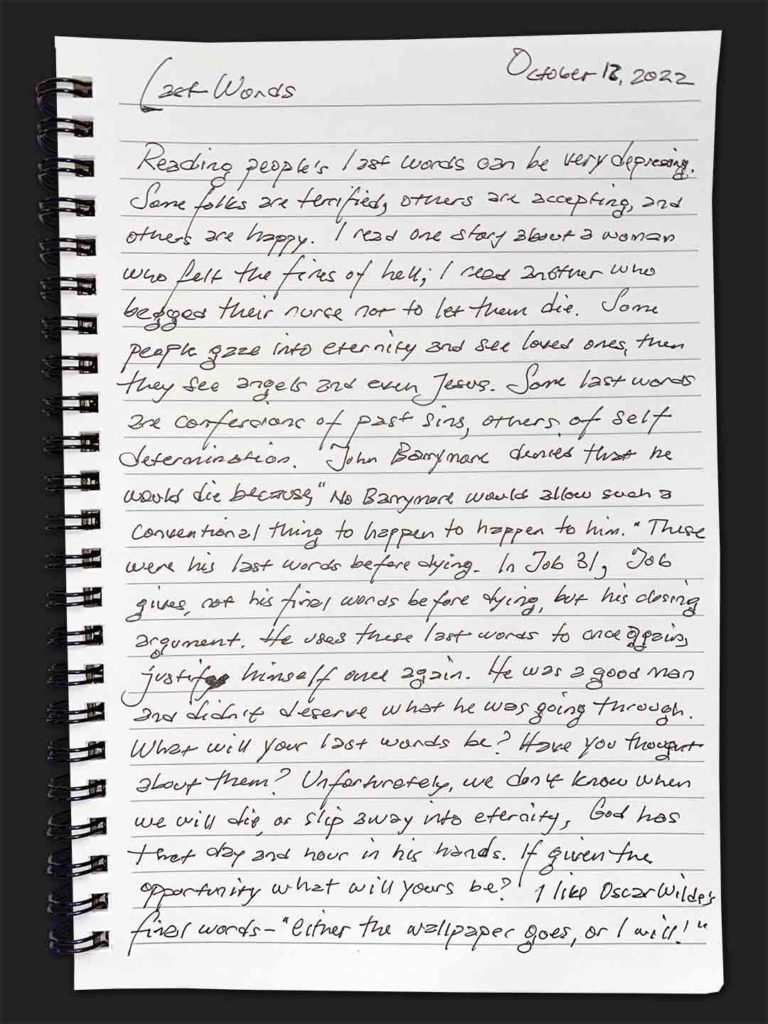 Last Words
October 12, 2022
Reading people's last words can be very depressing.
Some folks are terrified, others are accepting, and
others are happy. I read one story about a woman
who felt the fires of hell; I read another who
begged their nurse not to let them die. Some
people gaze into eternity and see loved ones, then
they see angels and even Jesus. Some last words
are confessions of past sins, others of self
determination. John Barrymore denied that he
would die because, "No Barrymore would allow such a
conventional thing to happen to happen to him." These
were his last words before dying. In Job 31, Job
gives, not his final words before dying, but his closing
argument. He uses these last words to once again,
justify himself once again. He was a good man
and didn't deserve what he was going through.
What will your last words be? Have you thought
about them? Unfortunately, we don't know when
we will die, or slip away into eternity, God has
that day and hour in his hands. If given the
opportunity what will yours be? I like Oscar Wilde's
final words - "either the wallpaper goes, or I will!"